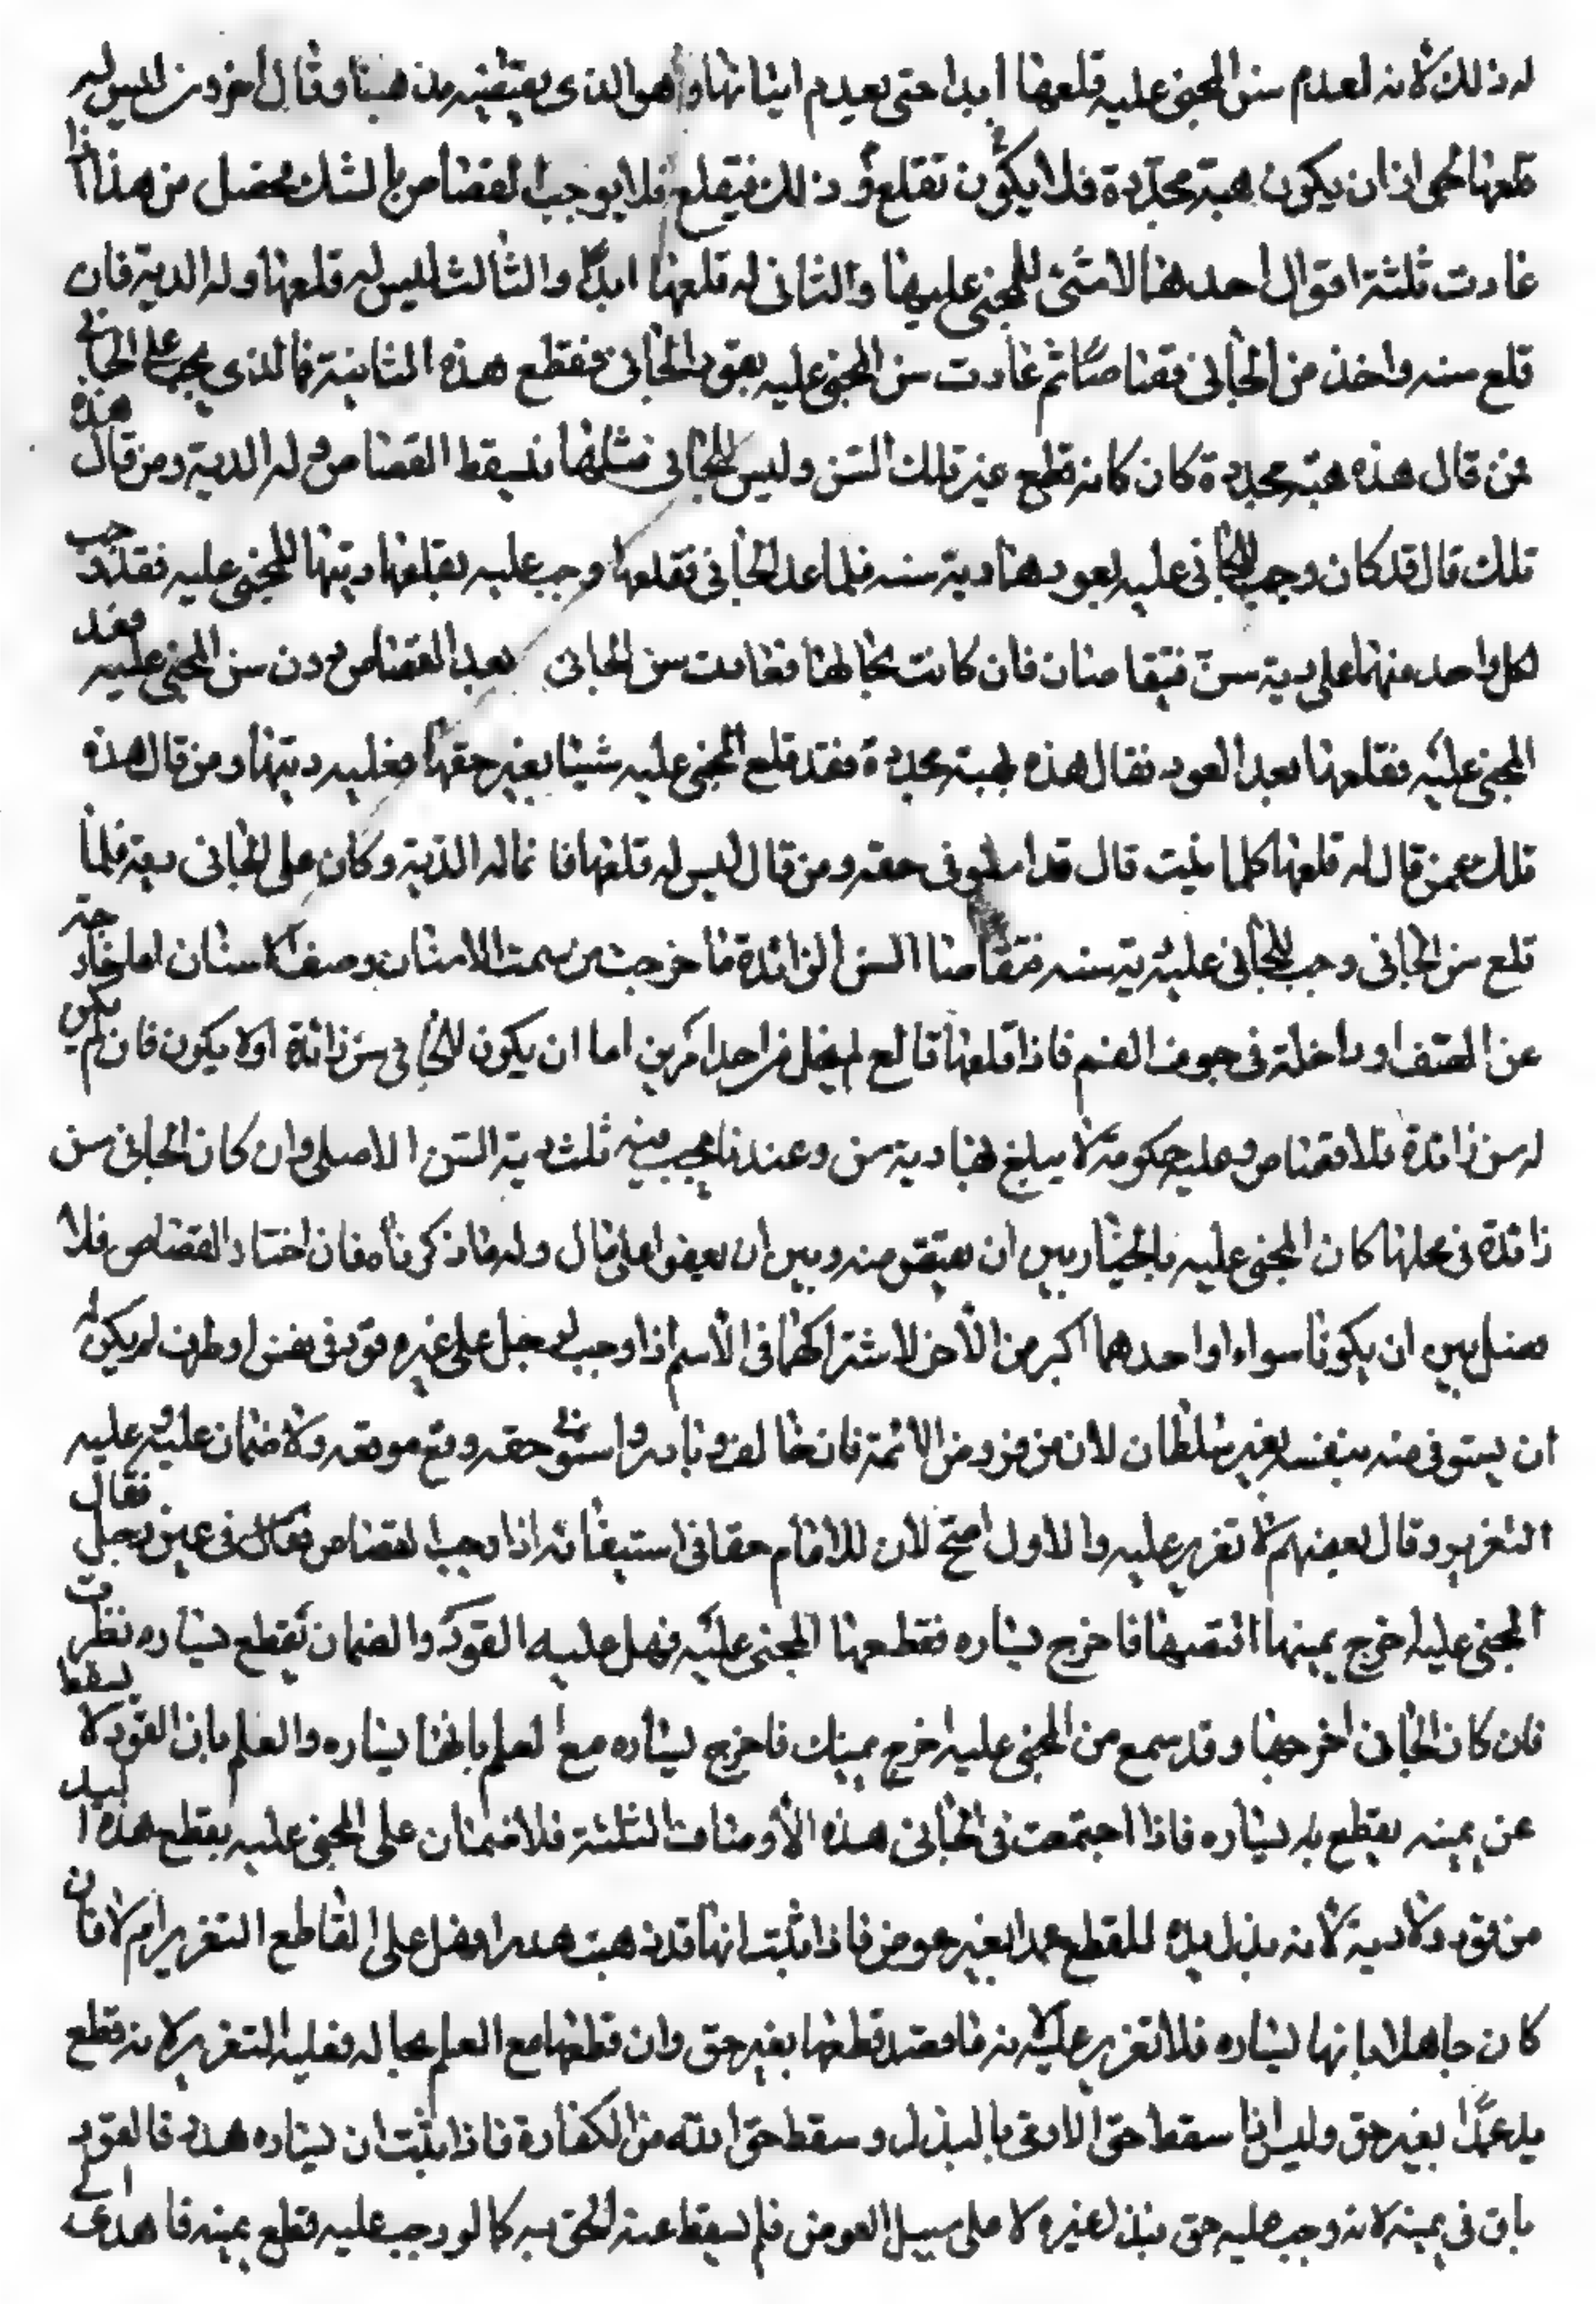 له ذلك لأنه اعدم سن المجني عليه قلعها ابدا حتى يعدم اثباتها وهو الذى يقتضيه مذهبنا وقال آخرون ليس له
قلعها لجواز ان يكون هبة مجددة فلا يكون تقلع ذلك فيقلع فلا يوجب القصاص بالشك تحصل من هذا اذا
عادت ثلثة اقوال احدها لا شئ للمجنى عليها والثانى له قلعها ابدا والثالث ليس له قلعها وله الدية فان
قلع سنه واخذ من الجانى قصاصا ثم عادت سن المجنى عليه يعود الجانى فقطع هذه الثانية فما الذى يجب على الجانى
فمن قال هذه هبة مجددة كان كانه قطع غير تلك السن وليس للجانى مثلها فيسقط القصاص وله الدية ومن قال هذه
تلك قال قد كان وجب للجانى عليه بعودها دية سنه فلما عد الجانى فقلعها وجب عليه بقلعها ديتها للمجنى عليه فقد وجب
لكل واحد منهما على دية سن فيتقاصان فان كانت بحالها فعادت سن الجانى بعد القصاص دون سن المجنى عليه فعد
المجنى عليه فقلعها بعد العود فقال هذه هبة مجددة فقد قلع المجنى عليه شيئا بغير حقها فعليه ديتها ومن قال هذه
تلك عمن قال له قلعها كلما نبتت قال قد استوفى حقه ومن قال ليس له قلعها فانما له الدية وكان على الجانى دية فلما
قلع سن الجانى وجب للجانى عليه دية سنه فتقاصا السن الزائدة ما خرجت من سمت الاسنان وصف الاسنان اما خارجة
عن الصف او داخلة فى جوف الفم فاذا قلعها قالع لم يخل من احد امرين اما ان يكون للجانى سن زائدة او لا يكون فان لم يكن
له سن زائدة فلا قصاص وعليه حكومة لا يبلغ بها دية سن وعندنا يجب فيه ثلث دية السن الاصلى وان كان الجانى سن
زائدة فى محلها كان المجنى عليه بالخيار بين ان يقتص منه وبين ان يعفو على مال وله ما ذكرناه فان اختار القصاص فلا
فصل بين ان يكونا سواء او احدهما اكبر من الآخر لاشتراكهما فى الاسم اذا وجب لرجل على غيره قود فى نفس او طرف لم يكن له
ان يستوفى منه بنفسه بغير سلطان لان من فروض الائمة فان خالف وبادر واستوفى حقه وقع موقعه ولا ضمان عليه وعليه
التعزير وقال بعضهم لا تعزير عليه والاول اصح لان للامام حقا فى استيفائه اذا وجب القصاص فى يمين رجل فقال
المجنى عليه اخرج يمينها اقتصها فاخرج يساره فقطعها المجنى عليه فهل عليه القود والضمان بقطع يساره نظرت
فان كان الجانى اخرجها وقد سمع من المجنى عليه اخرج يمينك فاخرج يساره مع العلم بانها يساره والعلم بان القود لا يسقط
عن يمينه بقطع يساره فاذا اجتمعت فى الجانى هذه الأوصاف الثلثة فلا ضمان على المجنى عليه بقطع هذه اليد
من قود ولا دية لأنه بذل يده للقطع عمدا بغير عوض فاذا ثبت انها قد ذهبت هدرا فهل على القاطع التعزير ام لا فان
كان جاهلا بانها يساره فلا تعزير عليه لأنه ما قصد قطعها بغير حق وان قطعها مع العلم بحاله فعليه التعزير لانه قطع
يد عمدا بغير حق وليس اذا سقط حق الادمى بالبذل وسقط حق الله من الكفارة فاذا ثبت ان يساره هدر فالقود
باق فى يمينه لانه وجب عليه حق فبذل غيره لا على سبيل العوض فلم يسقط عنه الحق به كما لو وجب عليه قطع يمينه فاهدى الى